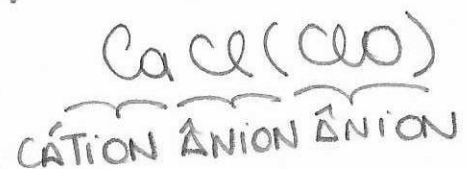 CaCl(ClO)
CÁTION ÂNION ÂNION